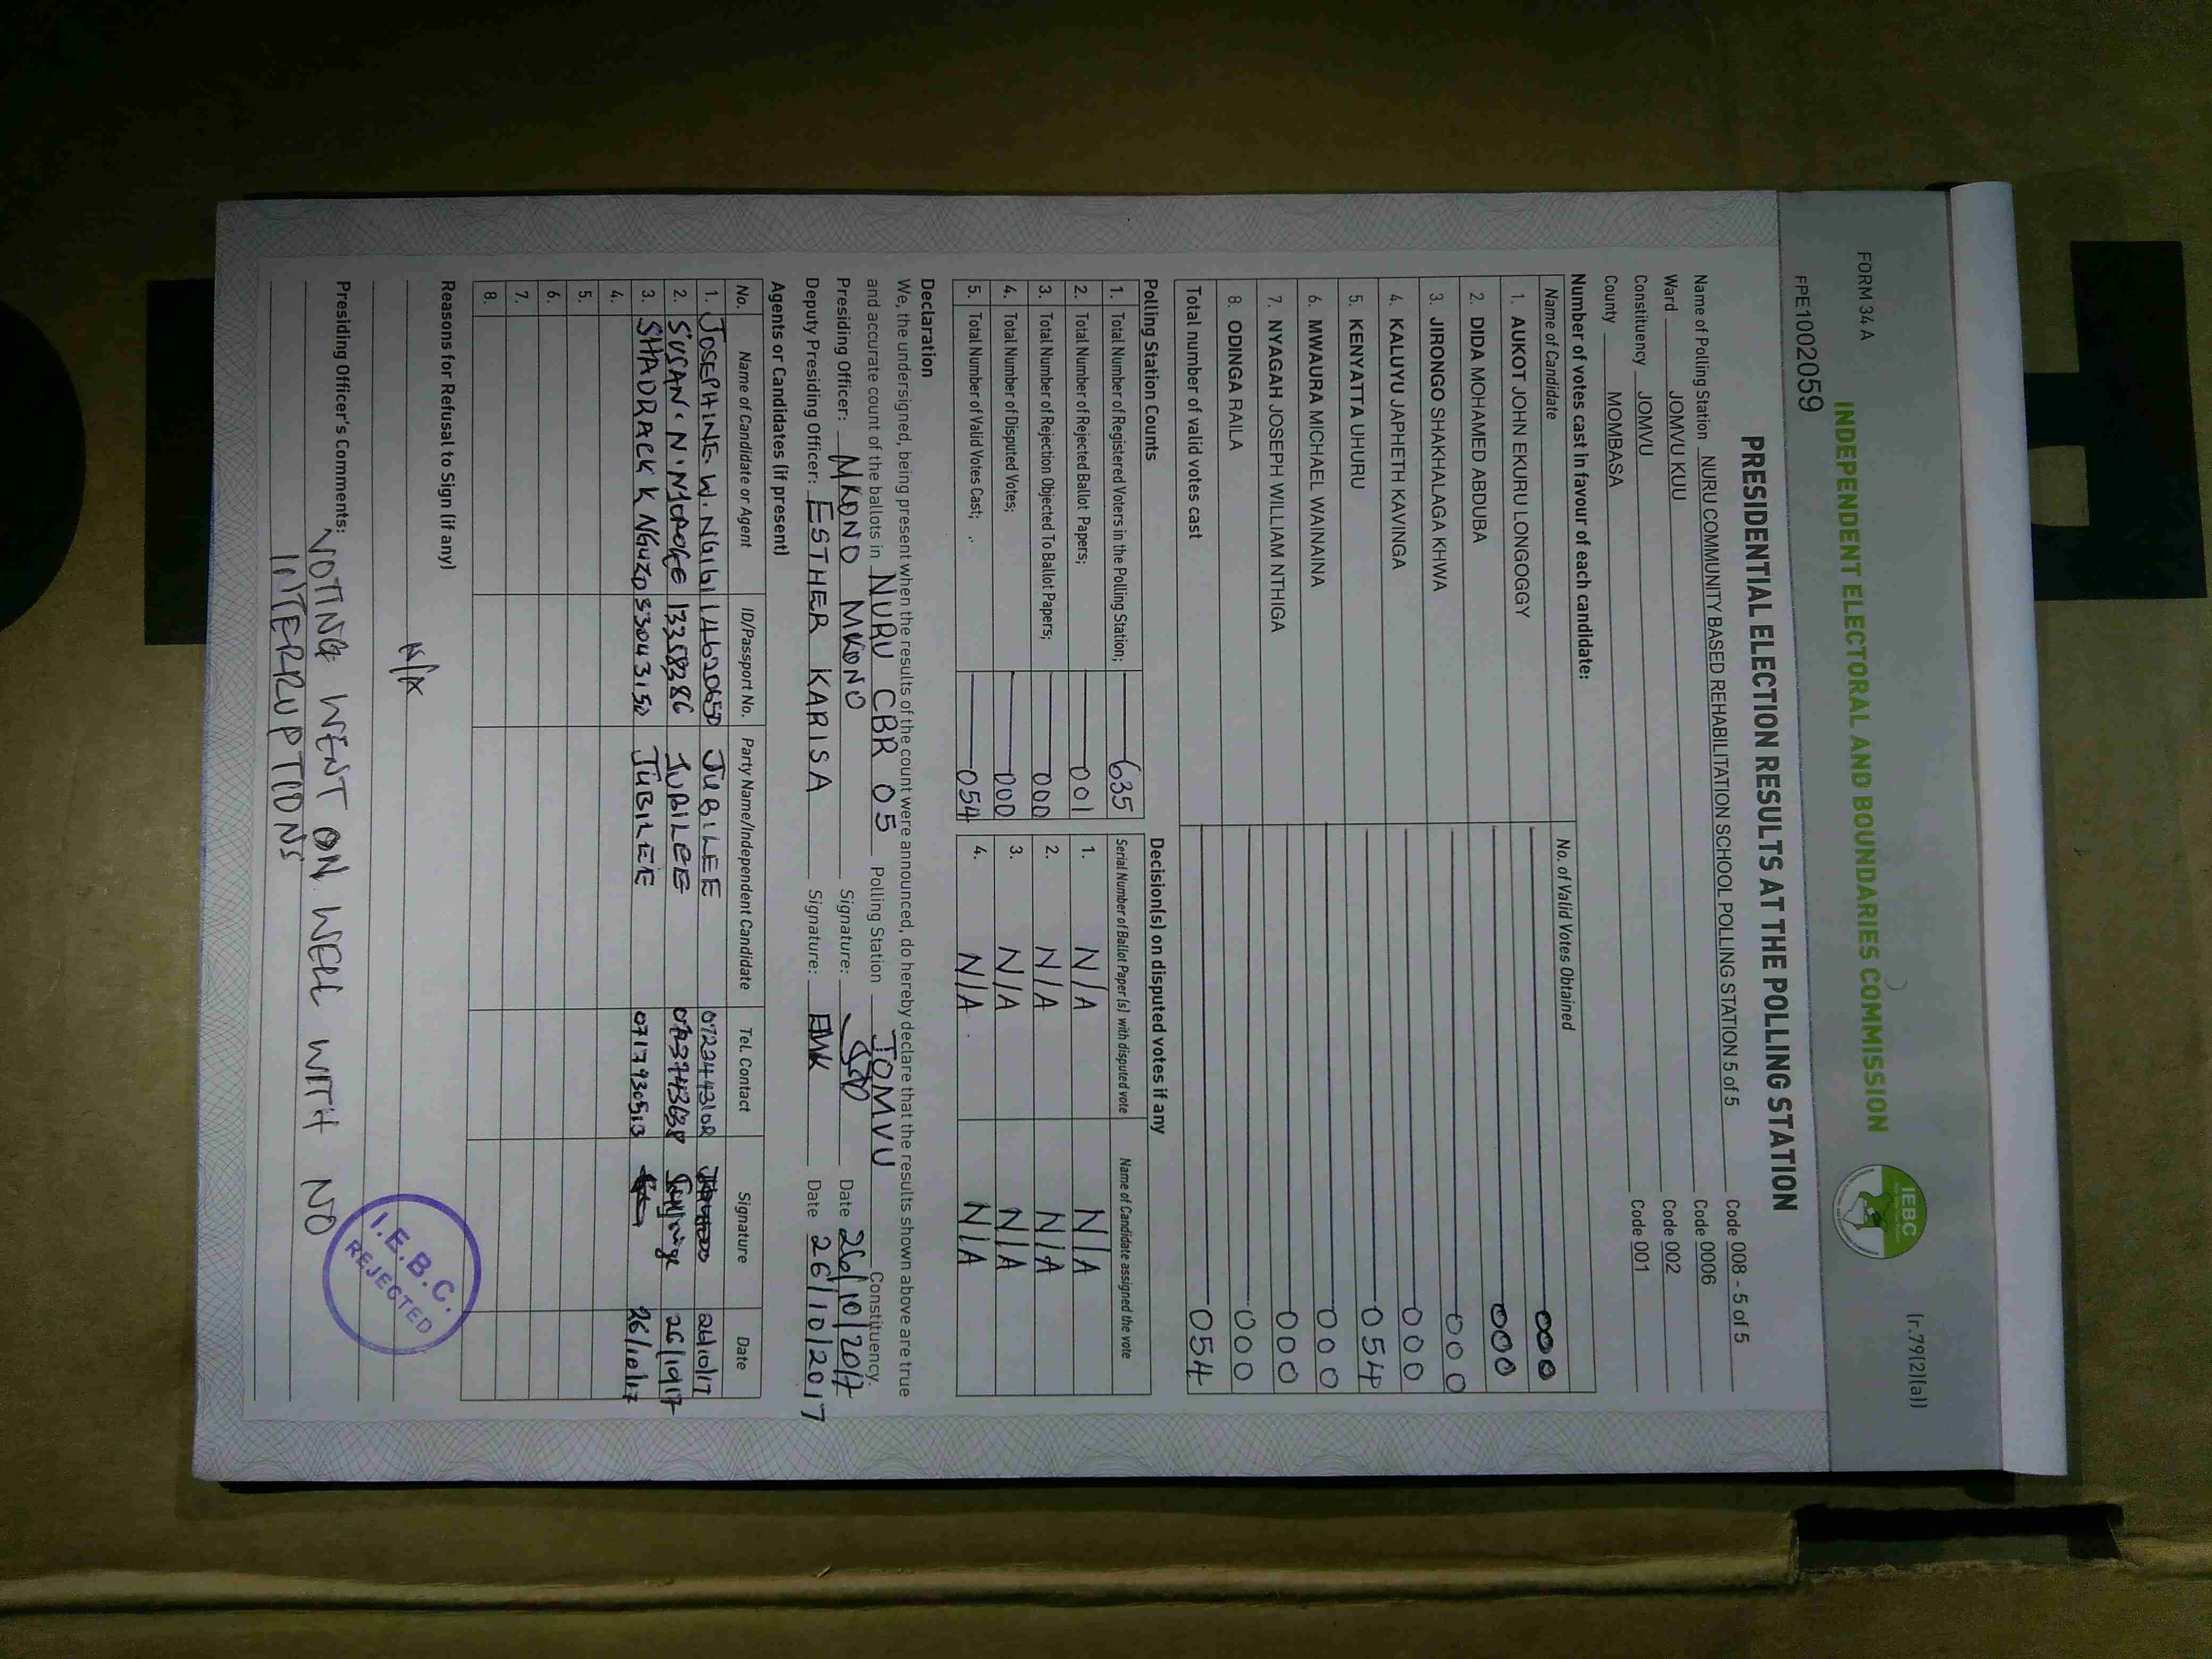 FORM 34 A
(r.79(2)(a))
INDEPENDENT ELECTORAL AND BOUNDARIES COMMISSION
IEBC
FPE1002059
PRESIDENTIAL ELECTION RESULTS AT THE POLLING STATION
Name of Polling Station NURU COMMUNITY BASED REHABILITATION SCHOOL POLLING STATION 5 of 5 Code 008 - 5 of 5
Ward JOMVU KUU Code 0006
Constituency JOMVU Code 002
County MOMBASA Code 001
Number of votes cast in favour of each candidate:
Name of Candidate No. of Valid Votes Obtained
1. AUKOT JOHN EKURU LONGOGGY 000
2. DIDA MOHAMED ABDUBA 000
3. JIRONGO SHAKHALAGA KHWA 000
4. KALUYU JAPHETH KAVINGA 000
5. KENYATTA UHURU 054
6. MWAURA MICHAEL WAINAINA 000
7. NYAGAH JOSEPH WILLIAM NTHIGA 000
8. ODINGA RAILA 000
Total number of valid votes cast 054
Polling Station Counts
1. Total Number of Registered Voters in the Polling Station; 635
2. Total Number of Rejected Ballot Papers; 001
3. Total Number of Rejection Objected To Ballot Papers; 000
4. Total Number of Disputed Votes; 000
5. Total Number of Valid Votes Cast; 054
Decision(s) on disputed votes if any
Serial Number of Ballot Paper (s) with disputed vote Name of Candidate assigned the vote
1. N/A N/A
2. N/A N/A
3. N/A N/A
4. N/A N/A
Declaration
We, the undersigned, being present when the results of the count were announced, do hereby declare that the results shown above are true
and accurate count of the ballots in NURU CBR 05 Polling Station JOMVU Constituency.
Presiding Officer: MKONO MKONO Signature: Date 26/10/2017
Deputy Presiding Officer: ESTHER KARISA Signature: EMK Date 26/10/2017
Agents or Candidates (if present)
No. Name of Candidate or Agent ID/Passport No. Party Name/Independent Candidate Tel. Contact Signature Date
1. JOSEPHINE. W. NGIGI 14620650 JUBILEE 26/10/17
2. SUSAN. N. NJOROGE 13358386 JUBILEE 26/10/17
3. SHADRACK K NGUZO 33043150 JUBILEE 0717930513 26/10/17
4.
5.
6.
7.
8.
Reasons for Refusal to Sign (if any)
N/A
Presiding Officer's Comments: VOTING WENT ON WELL WITH NO
INTERRUPTIONS
I.E.B.C.
REJECTED